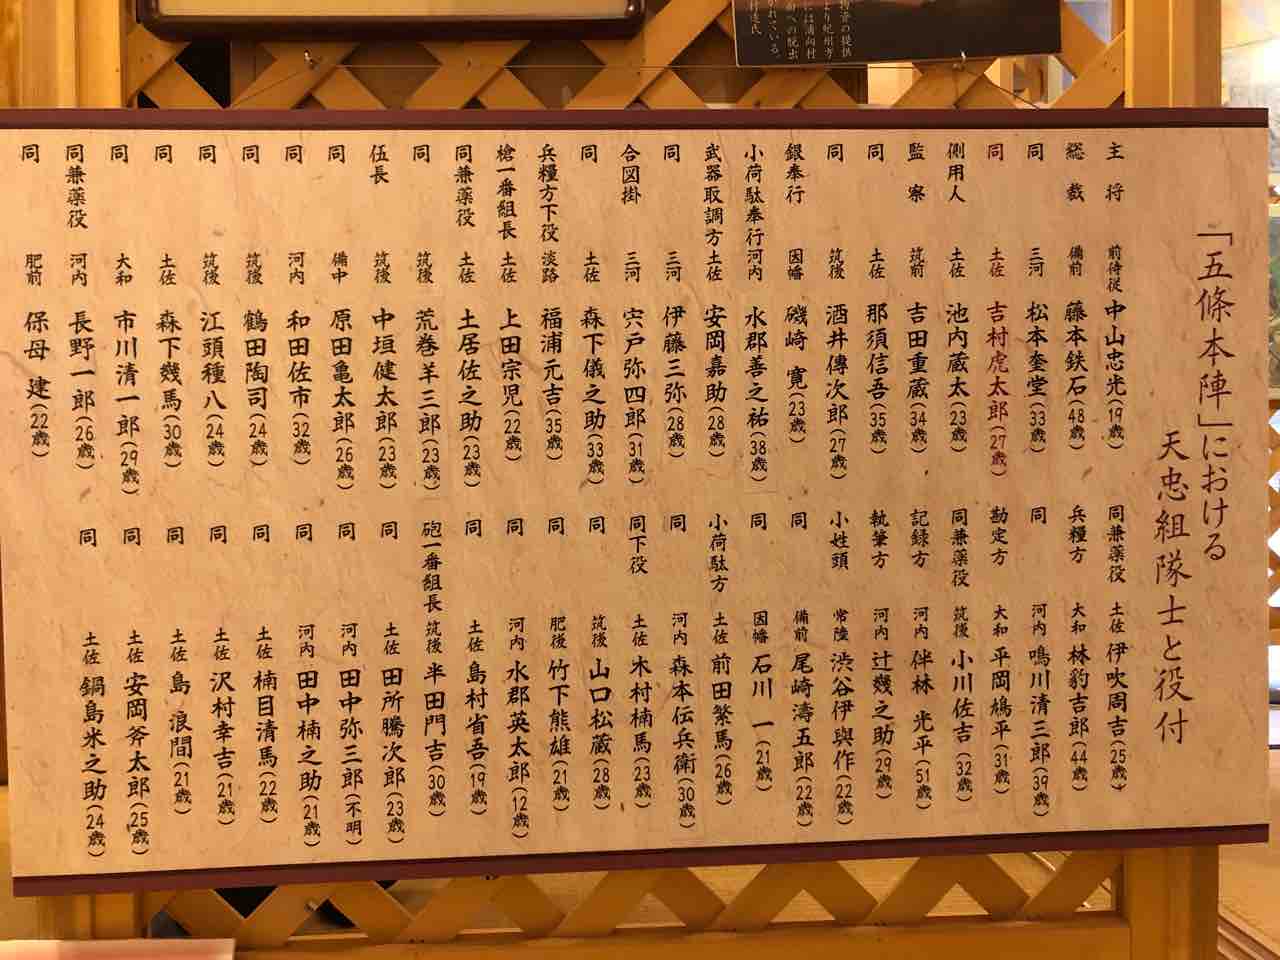 「五條本陣」における
天忠組隊士と役付
主将 前侍従 中山忠光(19歳)
総裁 備前 藤本鉄石(48歳)
同 三河 松本奎堂(33歳)
同 土佐 吉村虎太郎(27歳)
側用人 土佐 池内蔵太(23歳)
監察 筑前 吉田重蔵(34歳)
同 土佐 那須信吾(35歳)
同 筑後 酒井傳次郎(27歳)
銀奉行 因幡 磯崎 寛(23歳)
小荷駄奉行 河内 水郡善之祐(38歳)
武器取調方 土佐 安岡嘉助(28歳)
同 三河 伊藤三弥(28歳)
合図掛 三河 宍戸弥四郎(31歳)
同 土佐 森下儀之助(33歳)
兵糧方下役 淡路 福浦元吉(35歳)
槍一番組長 土佐 上田宗児(22歳)
同兼薬役 土佐 土居佐之助(23歳)
同 筑後 荒巻羊三郎(23歳)
伍長 筑後 中垣健太郎(23歳)
同 備中 原田亀太郎(26歳)
同 河内 和田佐市(32歳)
同 筑後 鶴田陶司(24歳)
同 筑後 江頭種八(24歳)
同 土佐 森下幾馬(30歳)
同 大和 市川清一郎(29歳)
同兼薬役 河内 長野一郎(26歳)
同 肥前 保母 建(22歳)
同兼薬役 土佐 伊吹周吉(25歳)
兵糧方 大和 林豹吉郎(44歳)
同 河内 鳴川清三郎(39歳)
勘定方 大和 平岡鳩平(31歳)
同兼薬役 筑後 小川佐吉(32歳)
記録方 河内 伴林 光平(51歳)
執筆方 河内 辻幾之助(29歳)
小姓頭 常陸 渋谷伊與作(22歳)
同 備前 尾崎濤五郎(22歳)
同 因幡 石川 一(21歳)
小荷駄方 土佐 前田繁馬(26歳)
同 河内 森本伝兵衛(30歳)
同下役 土佐 木村楠馬(23歳)
同 筑後 山口松蔵(28歳)
同 肥後 竹下熊雄(21歳)
同 河内 水郡英太郎(12歳)
同 土佐 島村省吾(19歳)
砲一番組長 筑後 半田門吉(30歳)
同 土佐 田所騰次郎(23歳)
同 河内 田中弥三郎(不明)
同 河内 田中楠之助(21歳)
同 土佐 楠目清馬(22歳)
同 土佐 沢村幸吉(21歳)
同 土佐 島 浪間(21歳)
同 土佐 安岡斧太郎(25歳)
同 土佐 鍋島米之助(24歳)